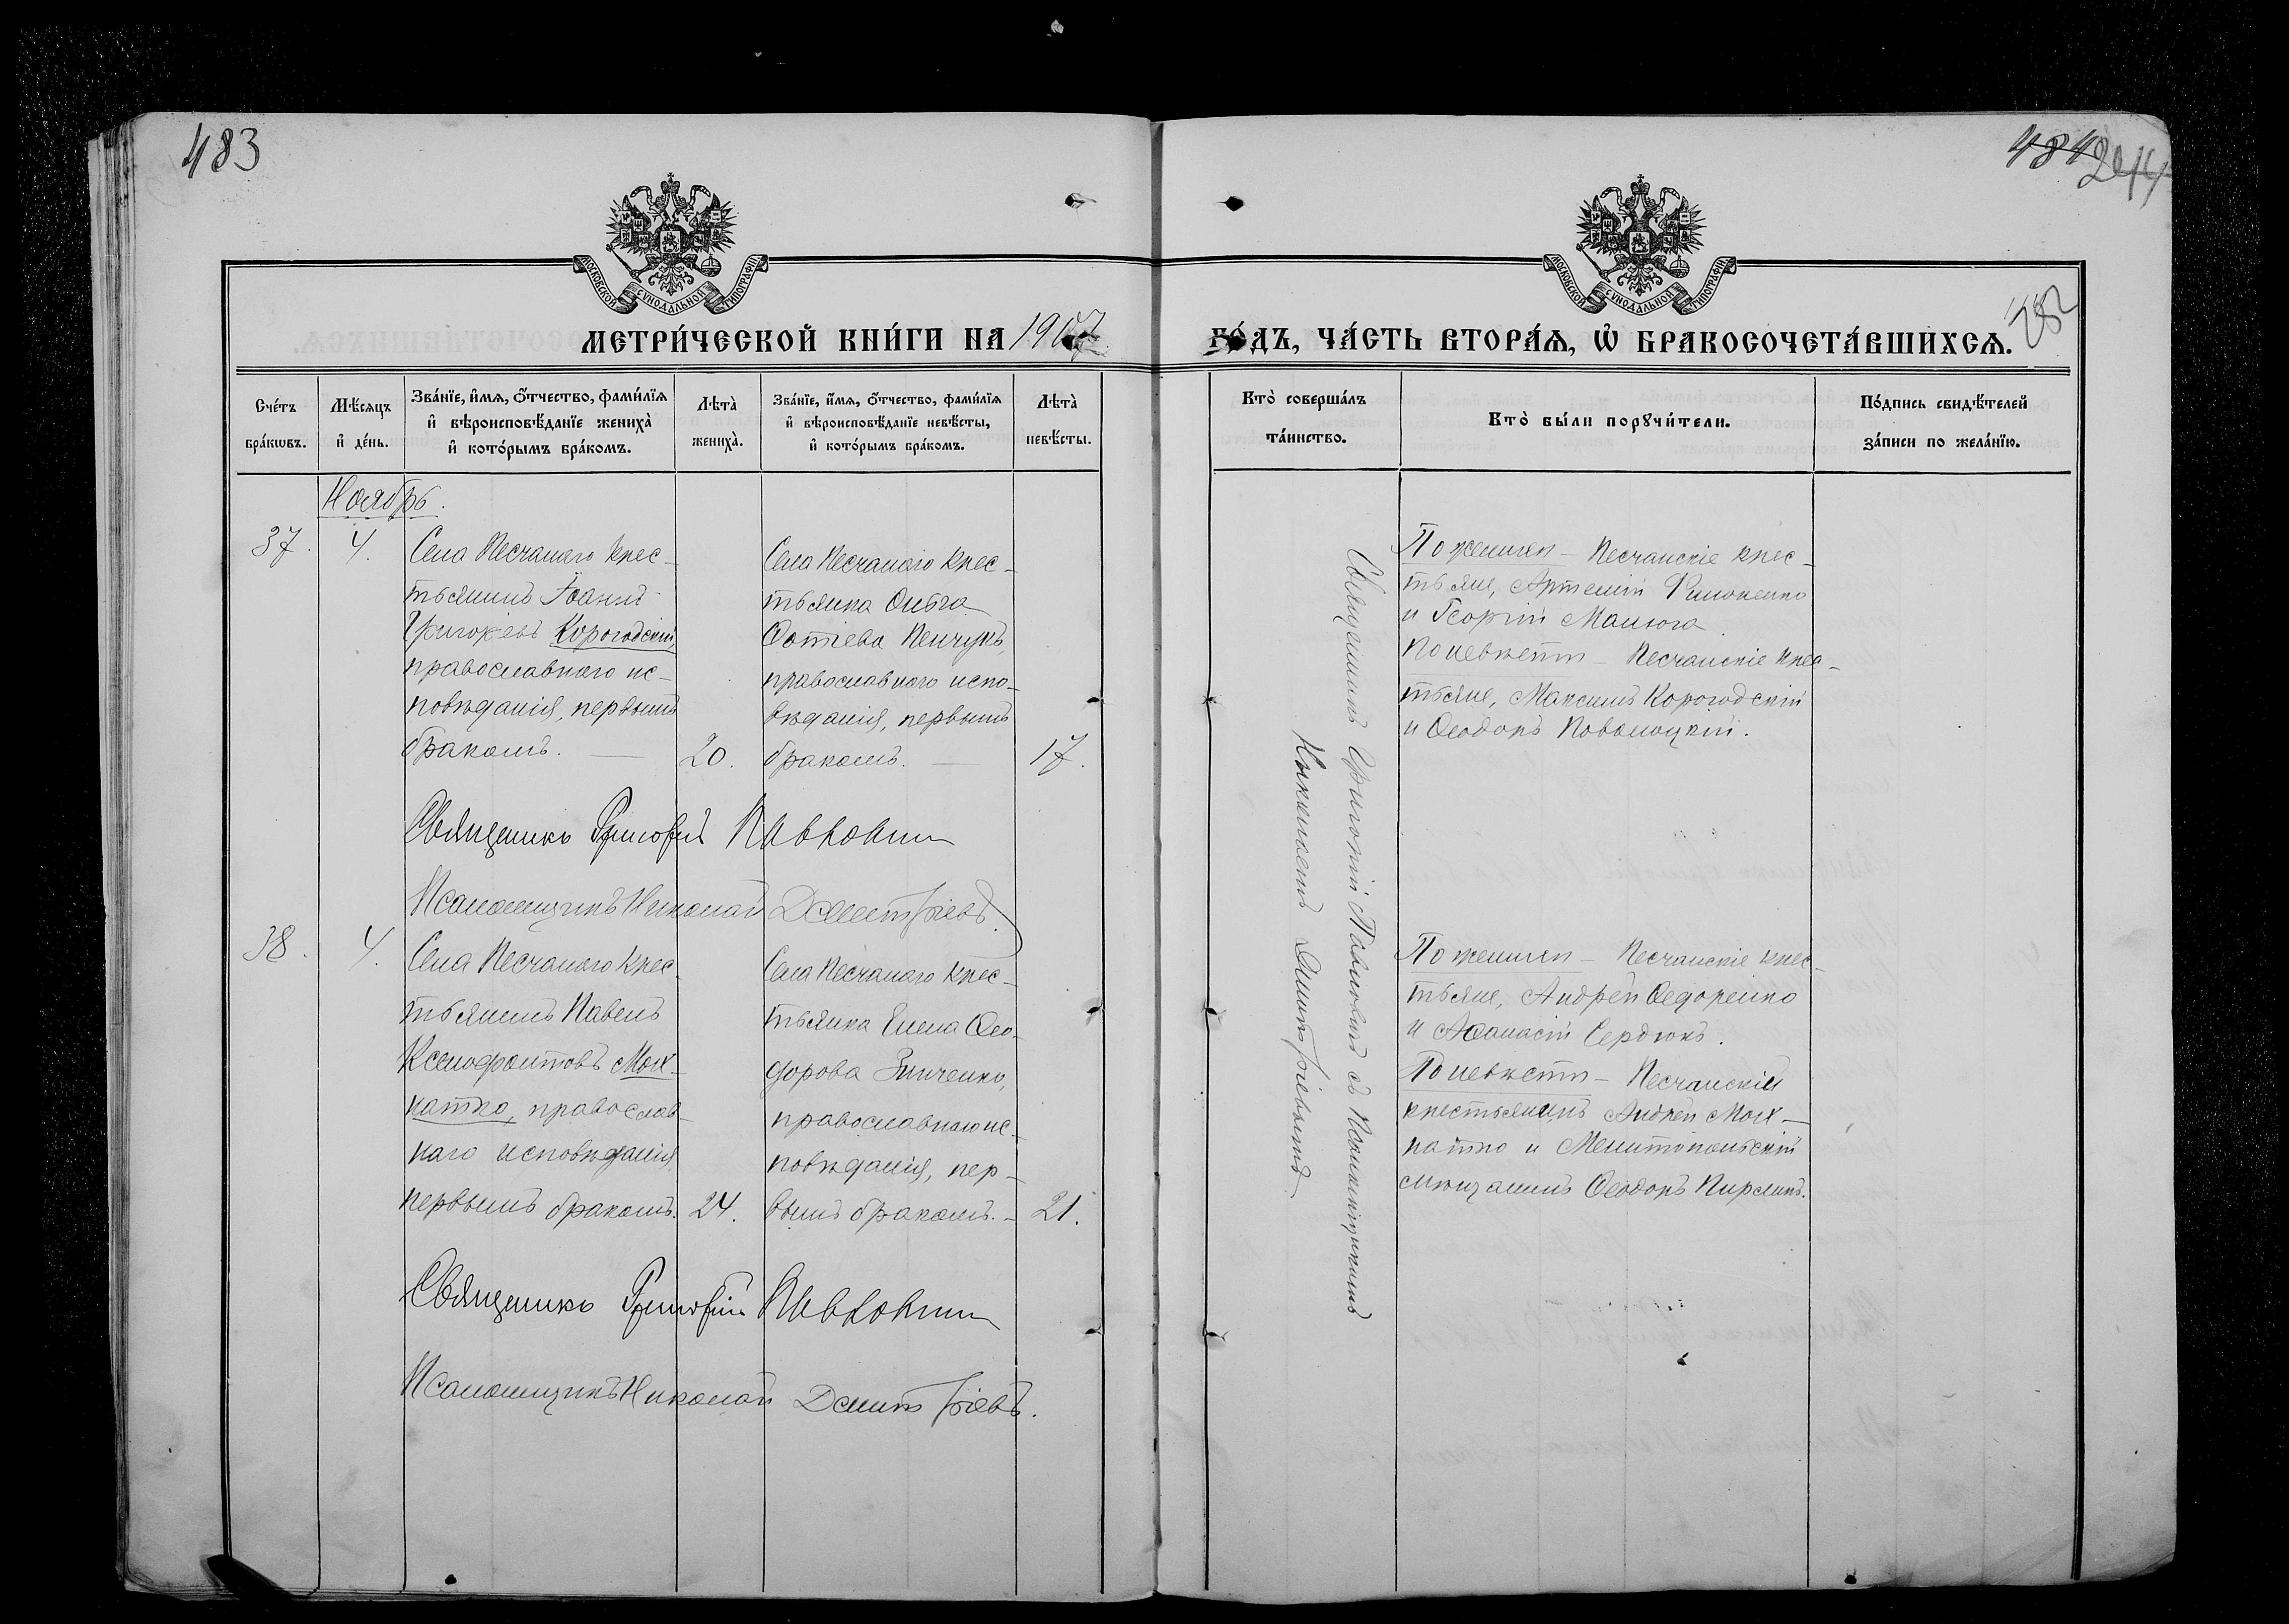 483
484 244
282
МОСКОВСКОЙ СѴНОДАЛЬНОЙ ТИПОГРАФІИ
МОСКОВСКОЙ СѴНОДАЛЬНОЙ ТИПОГРАФІИ
МЕТРИ́ЧЕСКОЙ КНИ́ГИ НА 1907
ГО́ДЪ, ЧА́СТЬ ВТОРА́Я, Ѡ БРАКОСОЧЕТА́ВШИХСЯ.
Сче́тъ бра́кѡвъ.
Мѣ́сяцъ и де́нь.
Зва́нїе, и́мя, о́тчество, фами́лїя и вѣроисповѣ́данїе жениха̀ и кото́рымъ бра́комъ.
Лѣта̀ жениха̀.
Зва́нїе, и́мя, о́тчество, фами́лїя и вѣроисповѣ́данїе невѣ́сты, и кото́рымъ бра́комъ.
Лѣта̀ невѣ́сты.
Кто̀ соверша́лъ та́инство.
Кто̀ бы́ли порꙋчи́тели.
По́дпись свидѣ́телей за́писи по жела́нїю.
Ноябрь.
37.
4.
Села Песчанаго крес-
тьянинъ Іоаннъ
Григорьевъ Корогодскій,
православнаго ис-
повѣданія, первымъ
бракомъ. —
20.
Села Песчанаго крес-
тьянка Ольга
Фотіева Пенчукъ,
православнаго испо-
вѣданія, первымъ
бракомъ. —
17.
Священникъ Григорій Павловичъ съ Псаломщикомъ
Николаемъ Дмитріевымъ
По женихѣ — Песчанскіе крес-
тьяне, Артемій Филоненко
и Георгій Манюга.
По невѣстѣ — Песчанскіе крес-
тьяне, Максимъ Корогодскій
и Ѳеодоръ Поволоцкій.
Священникъ Григорій Павловичъ
Псаломщикъ Николай Дмитріевъ.
38.
4.
Села Песчанаго крес-
тьянинъ Павелъ
Ксенофонтовъ Мох-
натко, православ-
наго исповѣданія,
первымъ бракомъ.
24.
Села Песчанаго крес-
тьянка Елена Ѳео-
дорова Зинченко,
православнаго ис-
повѣданія, пер-
вымъ бракомъ. —
21.
По женихѣ — Песчанскіе крес-
тьяне, Андрей Ѳедоренко
и Аѳанасій Сердюкъ.
По невѣстѣ — Песчанскій
крестьянинъ Андрей Мох-
натко и Мелитопольскій
мѣщанинъ Ѳеодоръ Пирлинъ.
Священникъ Григорій Павловичъ
Псаломщикъ Николай Дмитріевъ.